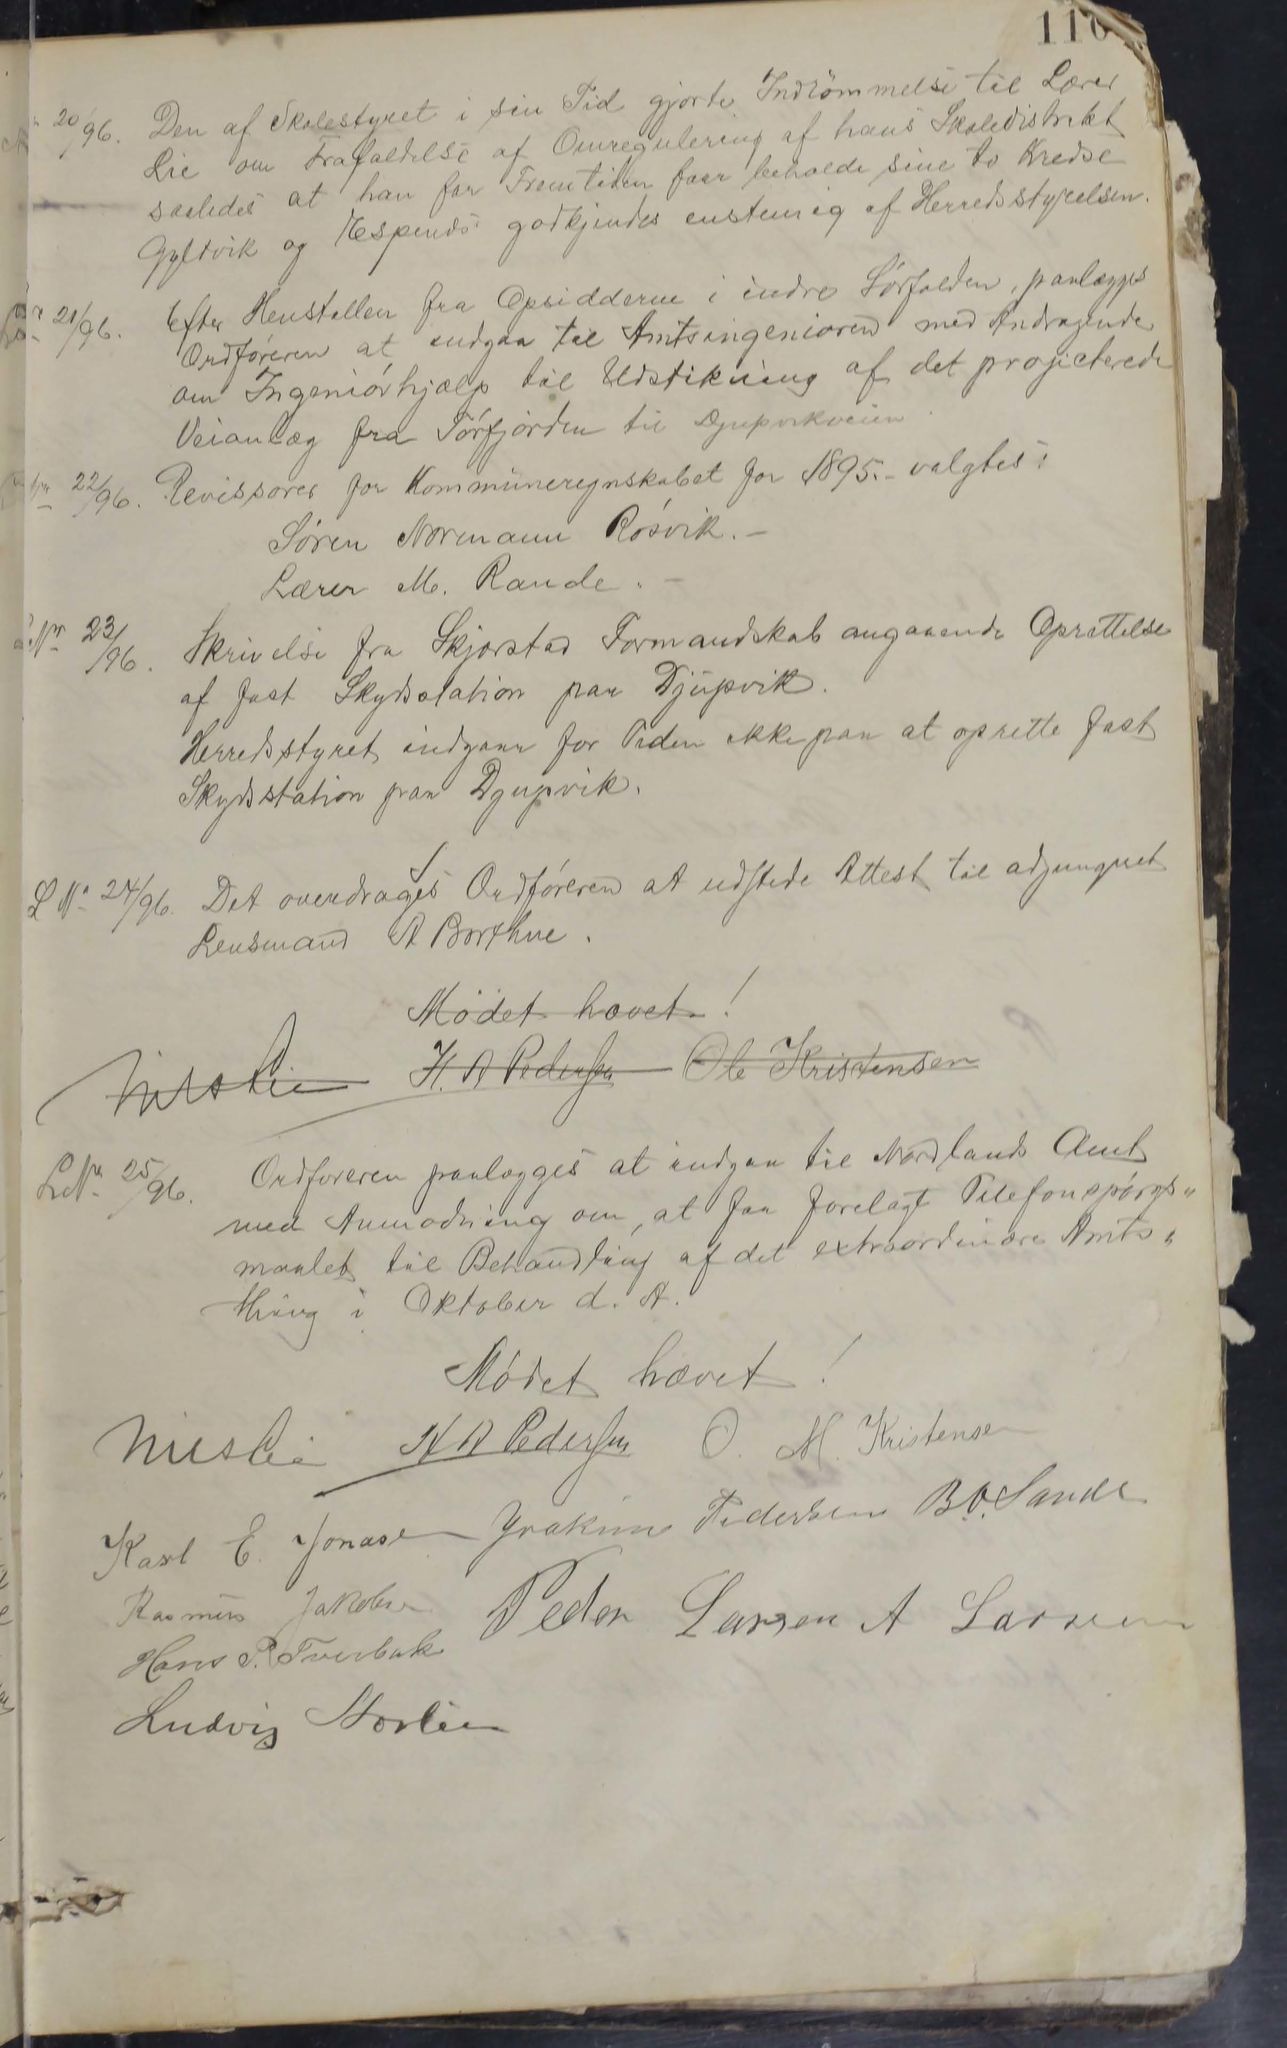 110
20/96. Den af Skolestyret i sin Tid gjorte Indrömmelse til Lærer
Lie om Frafaldelse af Omregulering af hans Skoledistrikt
saaledes at han for Fremtiden faar beholde sine to Kredse
Gyltvik og Espenes godkjendes enstemig af Herredsstyrelsen.
21/96. Efter Henstillen fra Opsidderne i indre Sörfolden, paalægges
Ordföreren at indgaa til Amtsingeniören med Andragende
om Ingeniörhjælp til Udstikning af det projecterede
Veianlæg fra Sörfjorden til Djupvikveien
22/96. Revissorer for Kommuneregnskabet for 1895.- valgtes:
Sören Normann Rösvik. -
Lærer M. Rande. -
Nr 23/96. Skrivelse fra Skjerstad Formandskab angaaende Oprettelse
af fast Skydsstation paa Djupvik.
Herredsstyret indgaar for Tiden ikke paa at oprette fast
Skydsstation paa Djupvik.
L Nr 24/96. Det overdrages Ordföreren at udstede Attest til adjungeret
Lensmand A Borthne.
Mödet hævet!
Nils Lie H. A Pedersen Ole Kristensen
L Nr 25/96. Ordföreren paalægges at indgaa til Nordlands Amt
med Anmodning om, at faa forelagt Telefonspörgs„
maalet til Behandling af det extraordinære Amts„
thing i Oktober d. A.
Mödet hævet!
Nils Lie H A Pedersen O. M. Kristensen
Karl E. Jonasen Joakim Pedersen B. O. Sande
Rasmus Jakobsen Peder Larsen A Larsen
Hans P. Tverbak
Ludvig Norlien